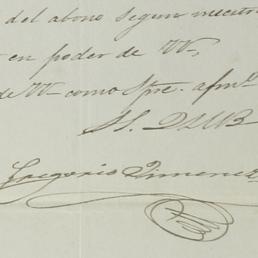 del abono segun nuestro
en poder de VV,
de VV como Spre. afmo.
SS. QSMB
Gregorio Jimenez